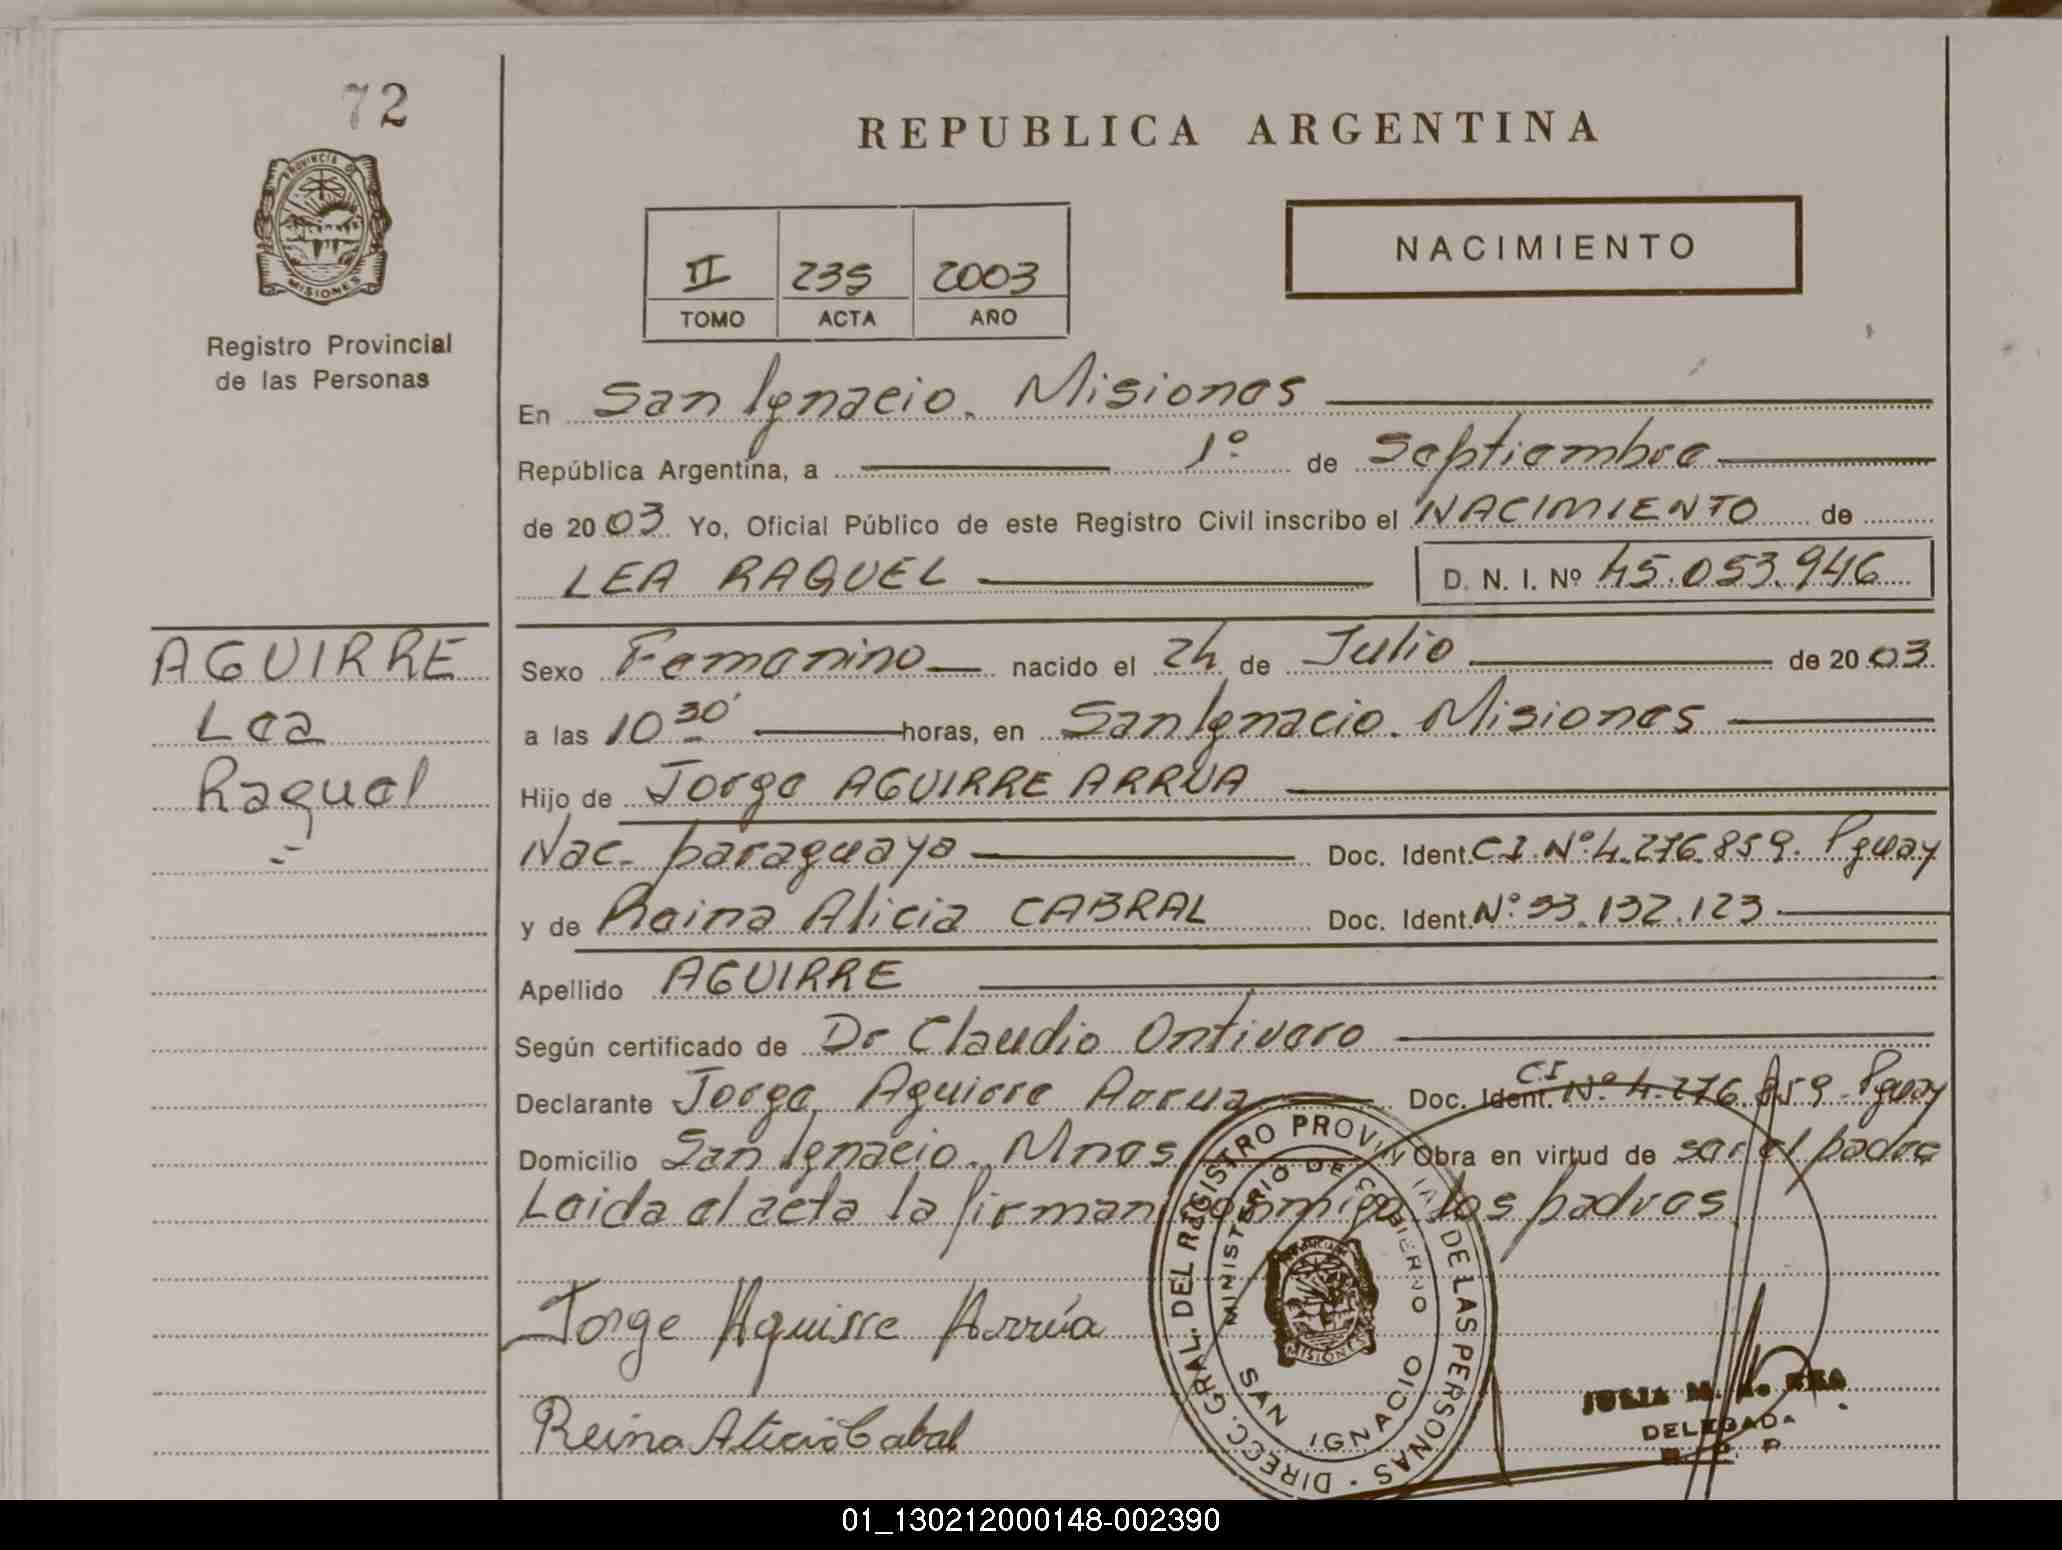 72
REPUBLICA ARGENTINA
PROVINCIA DE
MISIONES
Registro Provincial
de las Personas
II 235 2003
TOMO ACTA AÑO
NACIMIENTO
En San Ignacio. Misiones
República Argentina, a 1º de Septiembre
de 2003 Yo, Oficial Público de este Registro Civil inscribo el NACIMIENTO de
LEA RAQUEL D. N. I. Nº 45.053.946
AGUIRRE
Lea
Raquel
Sexo Femenino nacido el 24 de Julio de 2003
a las 10 30' horas, en San Ignacio. Misiones
Hijo de Jorge AGUIRRE ARRUA
Nac. paraguaya Doc. Ident. C.I. Nº 4.276.859. Pguay
y de Reina Alicia CABRAL Doc. Ident. Nº 33.132.123
Apellido AGUIRRE
Según certificado de Dr Claudio Ontivero
Declarante Jorge Aguirre Arrua Doc. Ident. C.I Nº 4.276.859. Pguay
Domicilio San Ignacio. Mnes Obra en virtud de ser el padre
Leida el acta la firman conmigo los padres
Jorge Aguirre Arrúa
Reina Alicia Cabral
DIRECC. GRAL. DEL REGISTRO PROVINCIAL DE LAS PERSONAS
MINISTERIO DE GOBIERNO
MISIONES
SAN IGNACIO
JULIA M. REA
DELEGADA
01_130212000148-002390